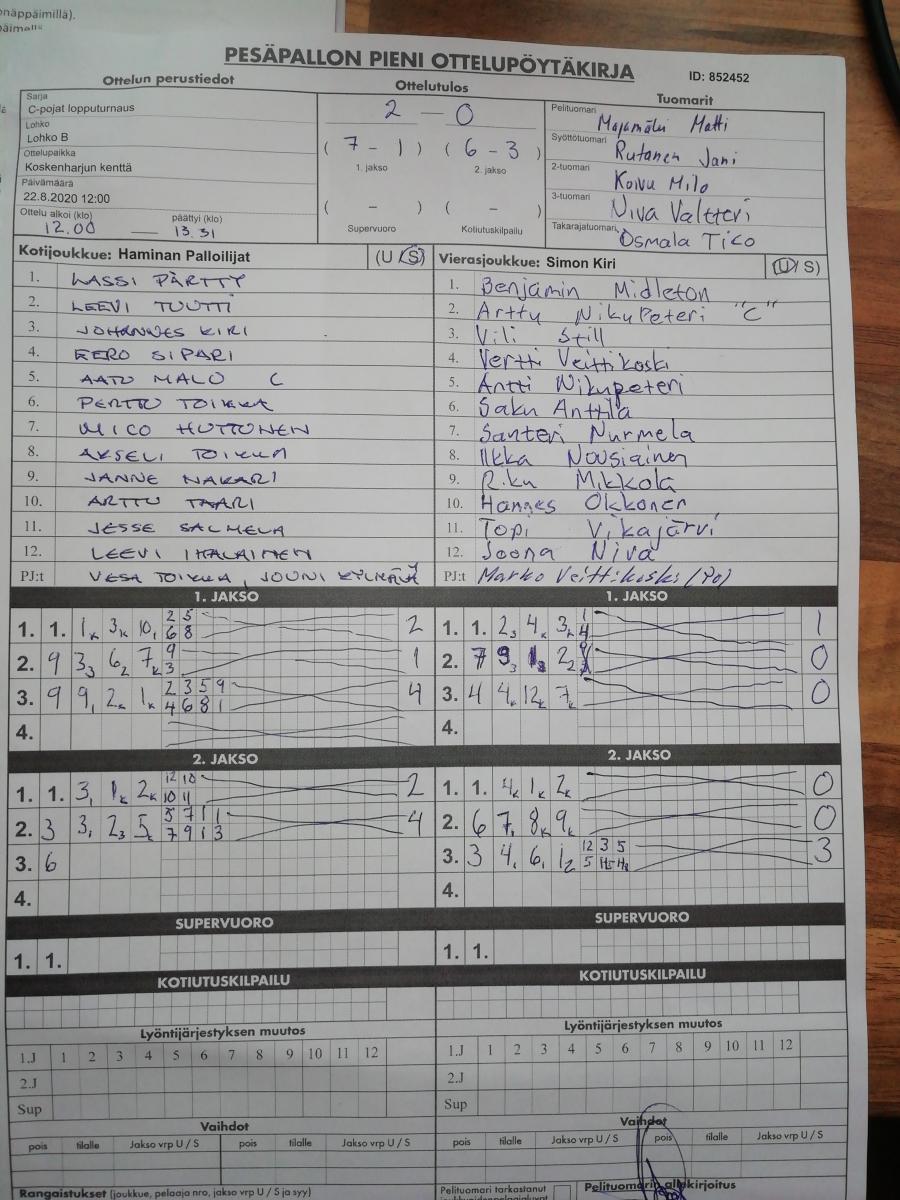 onäppäimillä).
PESÄPALLON PIENI OTTELUPÖYTÄKIRJA
ID: 852452
Ottelun perustiedot
Ottelutulos
Tuomarit
Sarja
C-pojat lopputurnaus
Lohko
Lohko B
Ottelupaikka
Koskenharjun kenttä
Päivämäärä
22.8.2020 12:00
Ottelu alkoi (klo) päättyi (klo)
12.00 — 13.31
2 — 0
( 7 - 1 ) ( 6 - 3 )
1. jakso 2. jakso
( - ) ( - )
Supervuoro Kotiutuskilpailu
Pelituomari Majamäki Matti
Syöttötuomari Rutanen Jani
2-tuomari Koivu Milo
3-tuomari Niva Valtteri
Takarajatuomari Osmala Tico
Kotijoukkue: Haminan Palloilijat (U / S)
1. LASSI PÄRTTY
2. LEEVI TUUTTI
3. JOHANNES KIRI
4. EERO SIPARI
5. AATU MALO C
6. PERTTU TOIKKA
7. MICO HUTTUNEN
8. AKSELI TOIKKA
9. JANNE NAKARI
10. ARTTU TAARI
11. JESSE SALMELA
12. LEEVI IHALAINEN
PJ:t VESA TOIKKA, JOUNI KYLMÄLÄ
Vierasjoukkue: Simon Kiri (U / S)
1. Benjamin Midleton
2. Arttu Nikupeteri "C"
3. Vili Still
4. Vertti Veittikoski
5. Antti Nikupeteri
6. Saku Anttila
7. Santeri Nurmela
8. Ilkka Nousiainen
9. Riku Mikkola
10. Hannes Okkonen
11. Topi Vikajärvi
12. Joona Niva
PJ:t Marko Veittikoski (Po)
1. JAKSO
1. 1. 1k 3k 10, 2 5 6 8 2
2. 9 33 62 7k 9 3 1
3. 9 9, 2k 1k 2 3 5 9 4 6 8 1 4
4.
1. JAKSO
1. 1. 23 4k 3k 1 4 1
2. 7 93 22 0
3. 4 4k 12k 7k 0
4.
2. JAKSO
1. 1. 3, 1k 2k 12 10 10 11 2
2. 3 3, 23 5k 5 7 1 1 7 9 1 3 4
3. 6
4.
2. JAKSO
1. 1. 4k 1k 2k 0
2. 6 7, 8k 9k 0
3. 3 4, 6, 12 12 3 5 5 3
4.
SUPERVUORO
1. 1.
SUPERVUORO
1. 1.
KOTIUTUSKILPAILU
KOTIUTUSKILPAILU
Lyöntijärjestyksen muutos
1.J 1 2 3 4 5 6 7 8 9 10 11 12
2.J
Sup
Lyöntijärjestyksen muutos
1.J 1 2 3 4 5 6 7 8 9 10 11 12
2.J
Sup
Vaihdot
pois tilalle Jakso vrp U / S pois tilalle Jakso vrp U / S
Vaihdot
pois tilalle Jakso vrp U / S pois tilalle Jakso vrp U / S
Rangaistukset (joukkue, pelaaja nro, jakso vrp U / S ja syy)
Pelituomari tarkastanut
Pelituomarin allekirjoitus